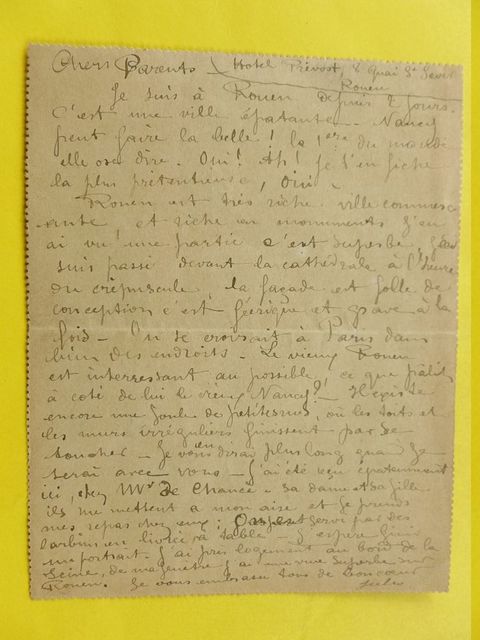 Chers Parents Hotel Prévost, 8 Quai St Sever
Rouen
Je suis à Rouen depuis 2 jours.
C'est une ville épatante. Nancy
peut faire la belle! la 1ere du monde
elle ose dire. Oui! Ah! Je t'en fiche
la plus prétentieuse, oui.
Rouen est très riche ville commerç
ante et riche en monuments j'en
ai vu une partie c'est superbe, Je
suis passé devant la cathédrale à l'heure
du crépuscule, la façade est folle de
conception c'est féerique et grave à la
fois - On se croirait à Paris dans
bien des endroits - Le vieux Rouen
est interressant au possible, ce que pâlit
à coté de lui le vieux Nancy?! - Il existe
encore une foule de petites rues, où les toits et
les murs irréguliers finissent par se
toucher - Je vous en dirai plus long quand je
serai avec vous - J'ai été reçu épatamment
ici, chez Mr de Chancé - sa dame et sa fille
ils me mettent a mon aise et je prends
mes repas chez eux; On est servi par des
larbins en livrée, à table - J'espère finir
un portrait. J'ai pris logement au bord de la
Seine, de ma fenêtre j'ai une vue superbe sur
Rouen. Je vous embrasse tous de bon coeur